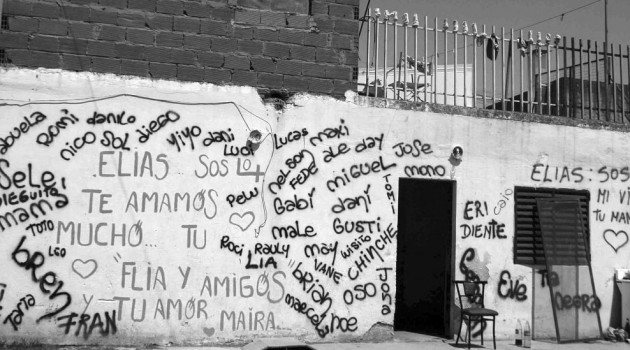 abuela
Romi danilo
nico Sol diego
yiyo dani
Luci
Lucas maxi
nelson ale day Jose
FEDE MIGUEL mono
Gabi dani TOMI
male GUSTI
Roci RAULY may wisito CHINCHE
LIA VANE
brian OSO Jona
marcelo noe
Sele
DIEGUITO
mama
TOTO
LEO
bren
Toria
FRAN
PELU
.ELIAS... SOS LO+
TE AMAMOS
MUCHO... TU
"FLIA Y AMIGOS
Y TU AMOR
MAIRA...
ERI caio
DIENTE
Eve
Tia
negra
ELIAS: SOS
MI VI
TU MAM